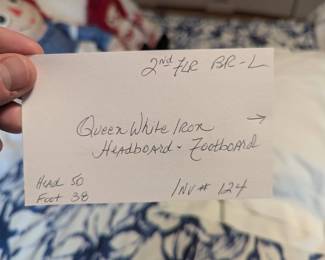 2nd FLR BR-L
Queen White Iron →
Headboard - Footboard
Head 50
Foot 38
INV# 124